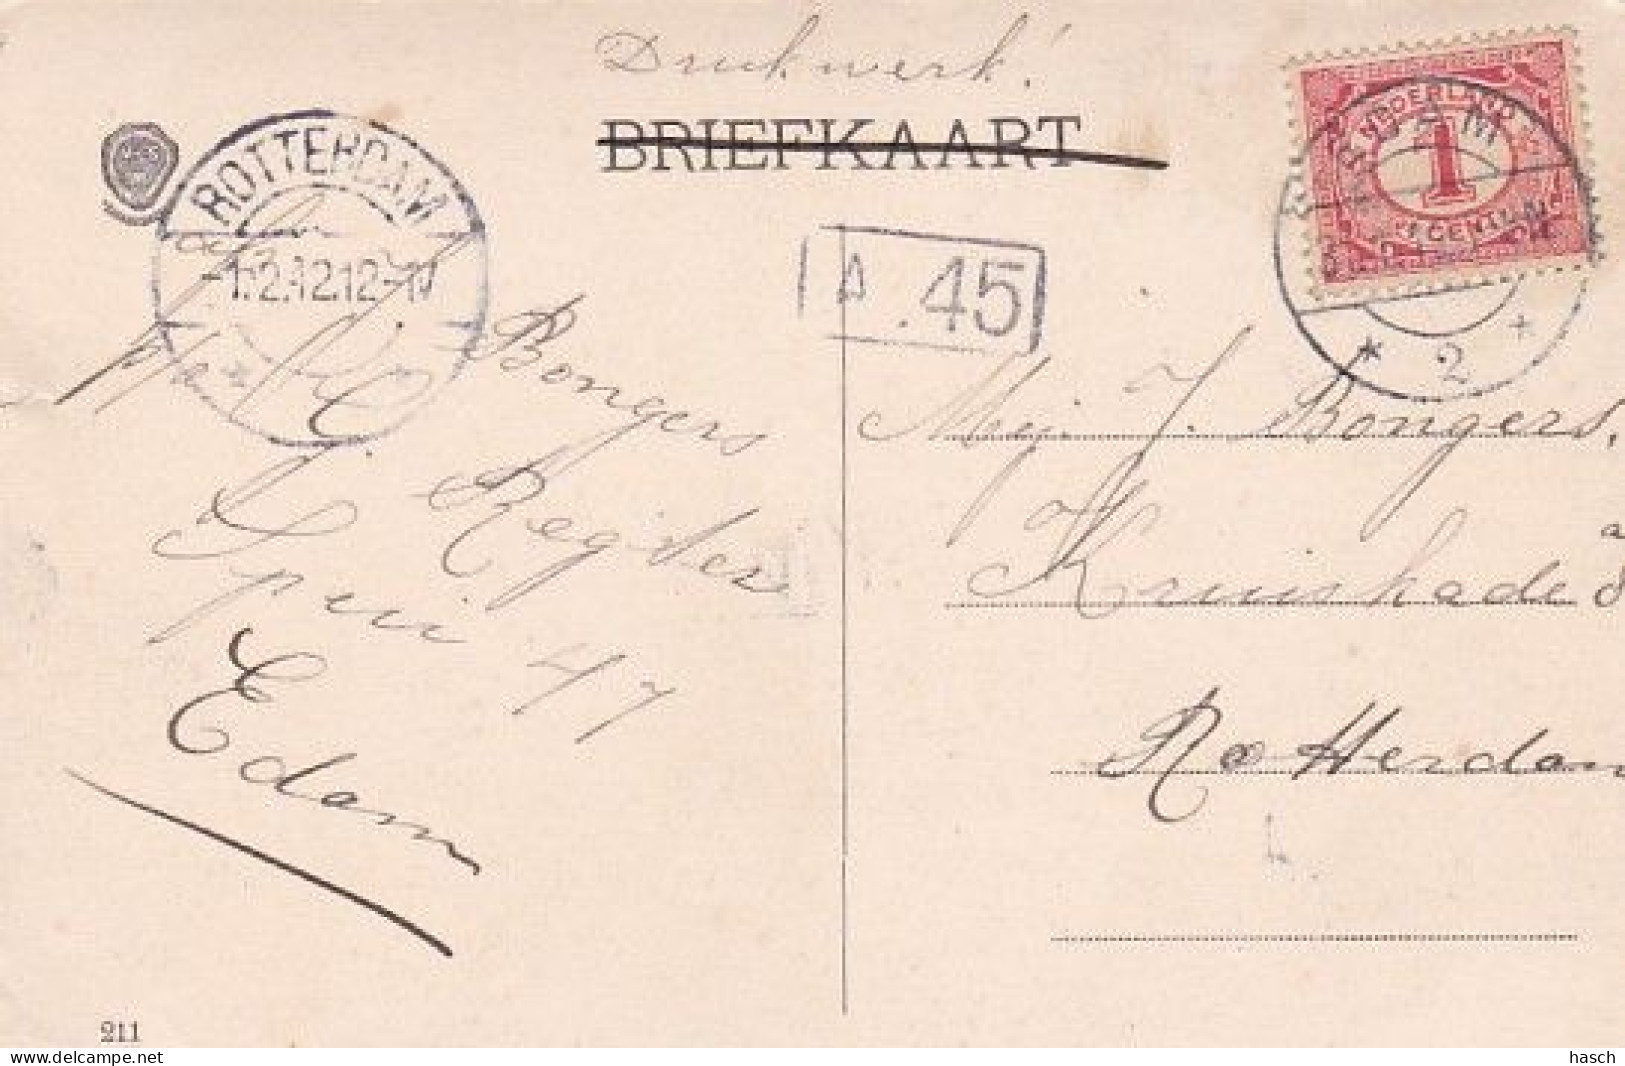 Drukwerk!
BRIEFKAART
ROTTERDAM
-1.2.12.12-1V
A .45
NEDERLAND
1
CENT
2
Bongers
Register
Spui 47
Edam
Mej. J. Bongers,
Kruiskade 8
a
Rotterdam
211
delcampe.net
hasch